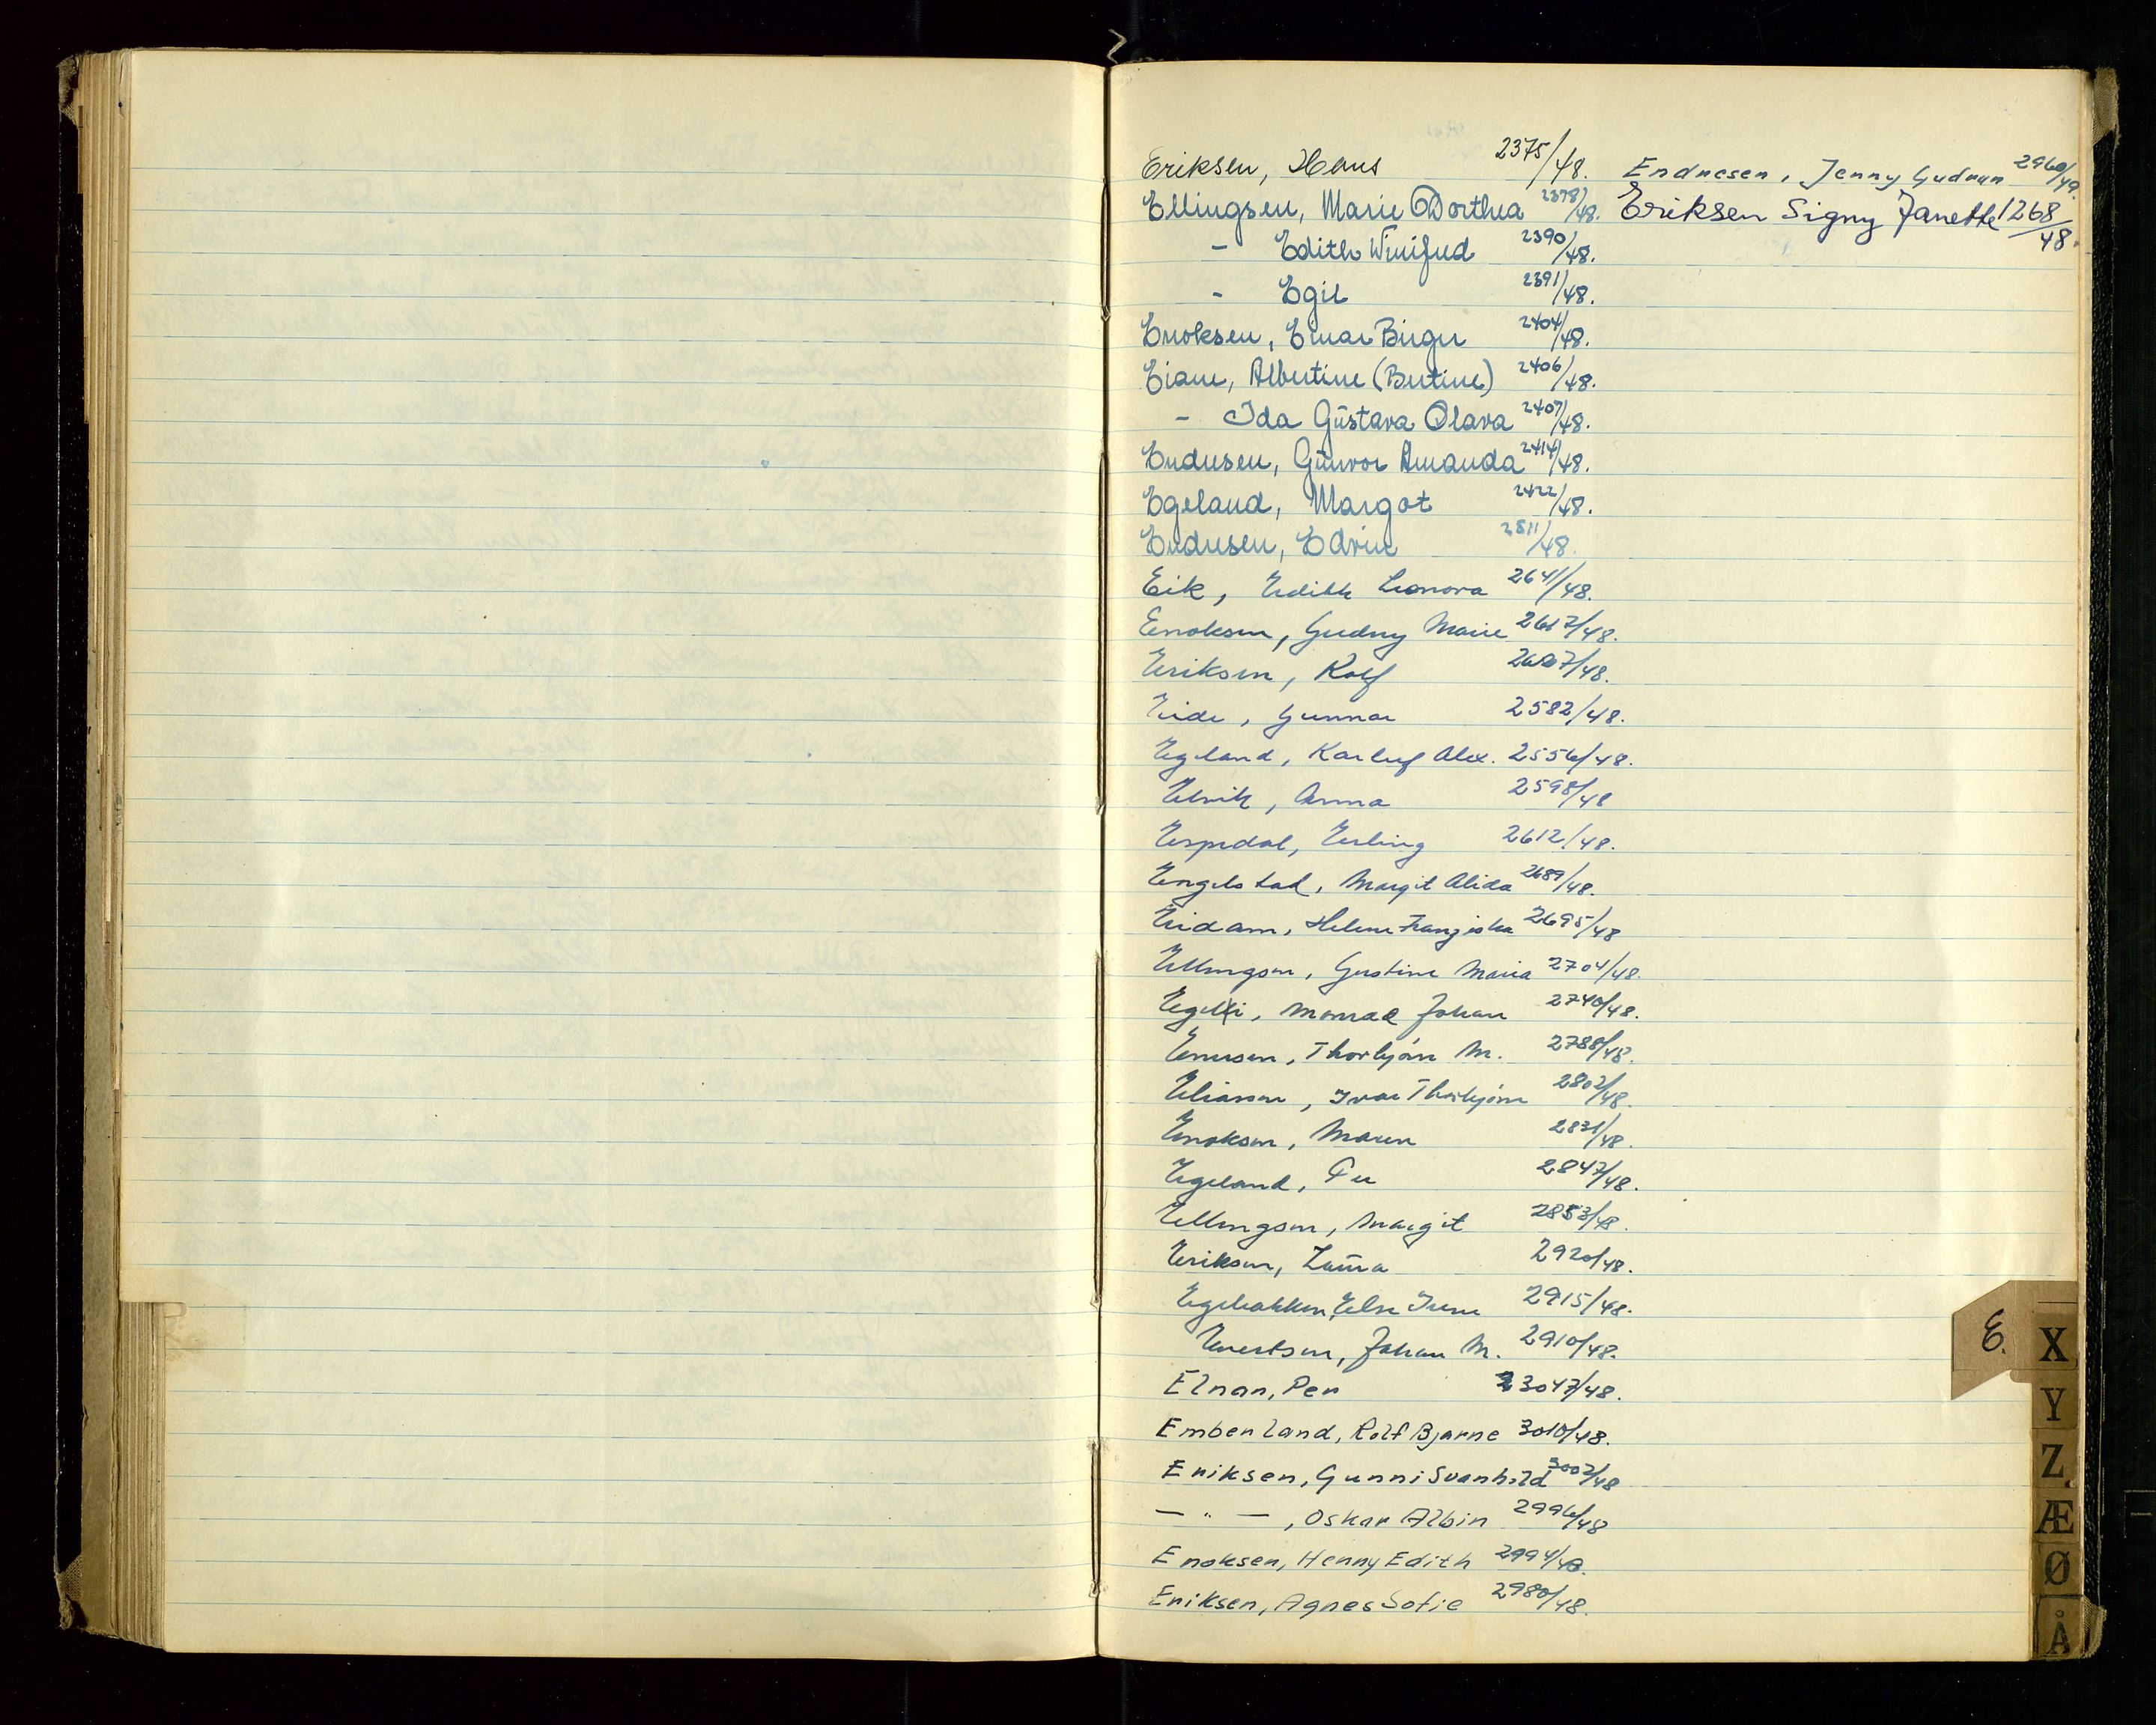 Eriksen, Hans 2375/48.
Ellingsen, Marie Dorthea 2378/48.
- Edith Winifred 2390/48.
- Egil 2391/48.
Enoksen, Einar Birger 2404/48.
Eiane, Albertine (Bertine) 2406/48.
- Ida Gustava Olava 2407/48.
Endresen, Gunvor Amanda 2414/48.
Egeland, Margot 2422/48.
Endresen, Edvin 2511/48.
Eik, Edith Leonora 2641/48.
Enoksen, Gudny Marie 2617/48.
Eriksen, Rolf /48.
Eide, Gunnar 2582/48.
Egeland, Karluf Alex. 2556/48.
Elvik, Anna 2598/48
Espedal, Erling 2612/48.
Engelstad, Margit Alida 2689/48.
Eidam, Helene Franziska 2695/48
Ellingsen, Gustine Maria 2704/48.
Egeli, Monrad Johan 2740/48.
Enersen, Thorbjørn M. 2788/48.
Eliassen, Ivar Thorbjørn 2802/48.
Enoksen, Maren 2831/48.
Egeland, Per 2847/48.
Ellingsen, Margit 2853/48.
Eriksen, Laura 2920/48.
Egebakken, Else Irene 2915/48.
Evertsen, Johan M. 2910/48.
Elnan, Per 3047/48.
Emberland, Rolf Bjarne 3010/48.
Eriksen, Gunni Svanhild 3002/48
— " — , Oskar Albin 2996/48
Enoksen, Henny Edith 2994/48.
Eriksen, Agnes Sofie 2980/48.
Endresen, Jenny Gudrun 2960/49.
Eriksen Signy Janette 1268/48.
E.
X
Y
Z
Æ
Ø
Å